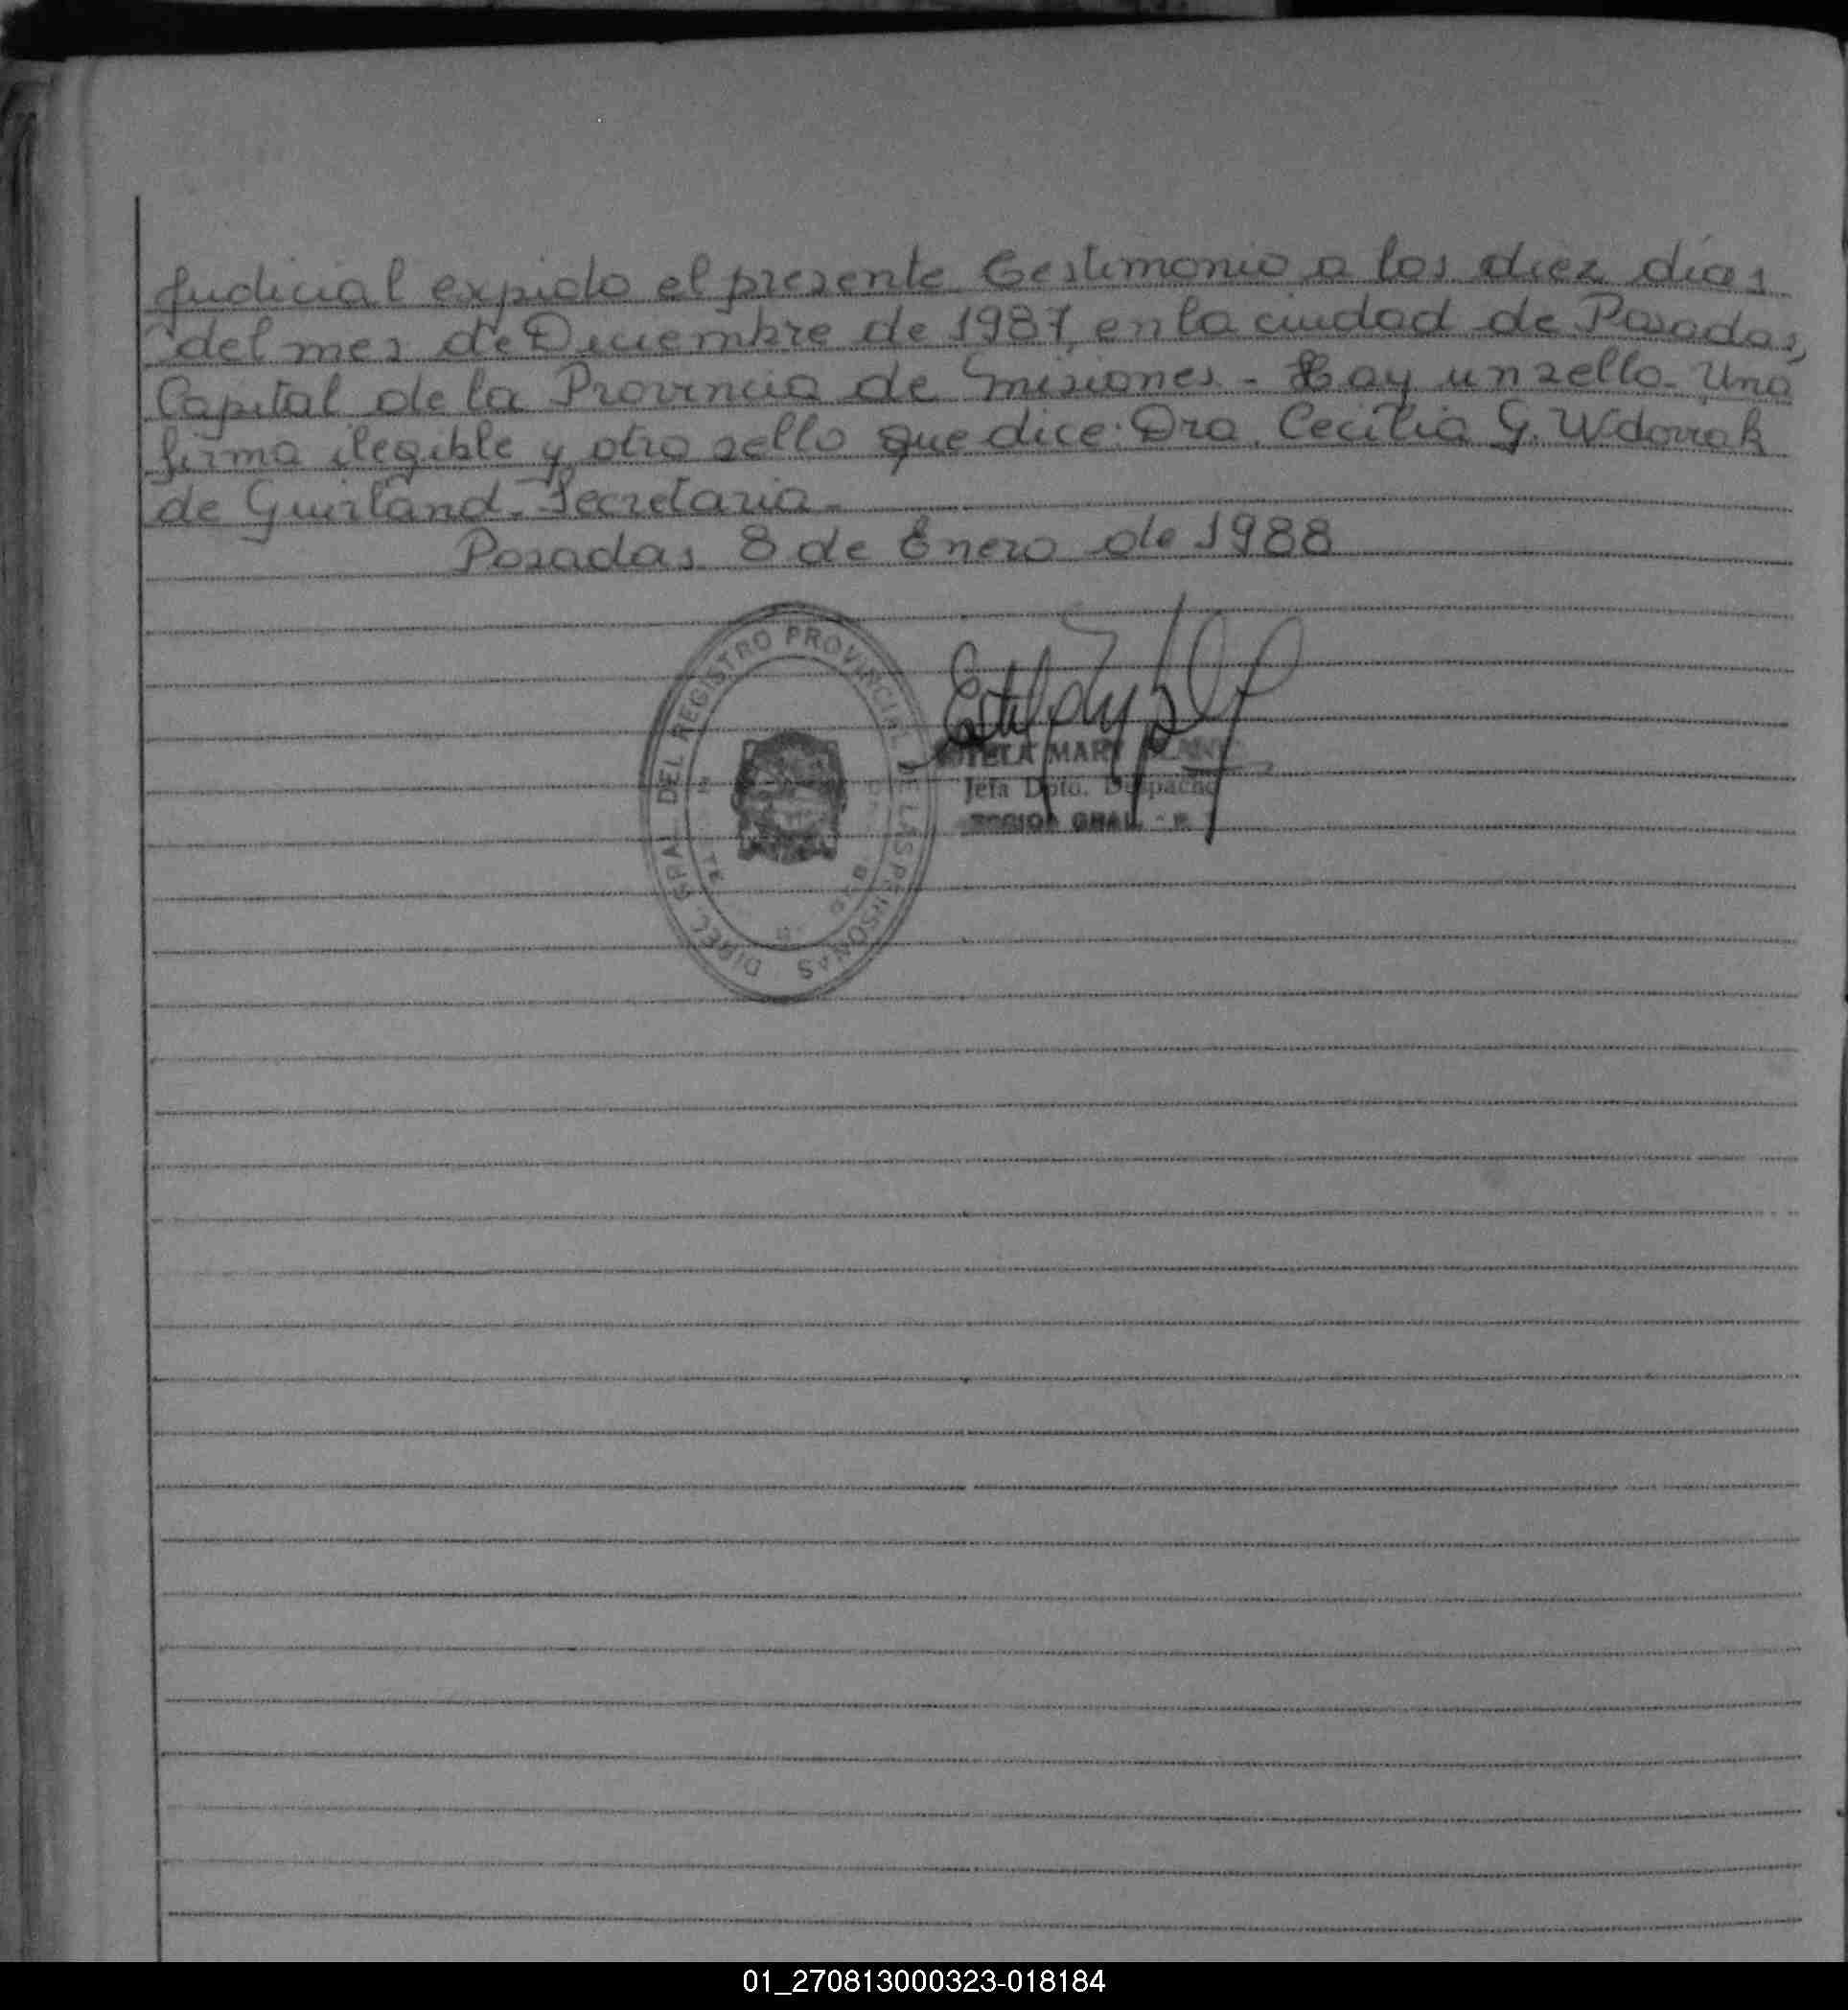 Judicial expido el presente Testimonio a los diez días
del mes de Diciembre de 1987, en la ciudad de Posadas,
Capital de la Provincia de Misiones - Hay un sello - Una
firma ilegible y otro sello que dice: Dra. Cecilia G. Wdoviak
de Guirland. Secretaria -
Posadas 8 de Enero de 1988
DIREC. GRAL DEL REGISTRO PROVINCIAL DE LAS PERSONAS
MARY
Jefa Dpto. Despacho
GRAL
01_270813000323-018184